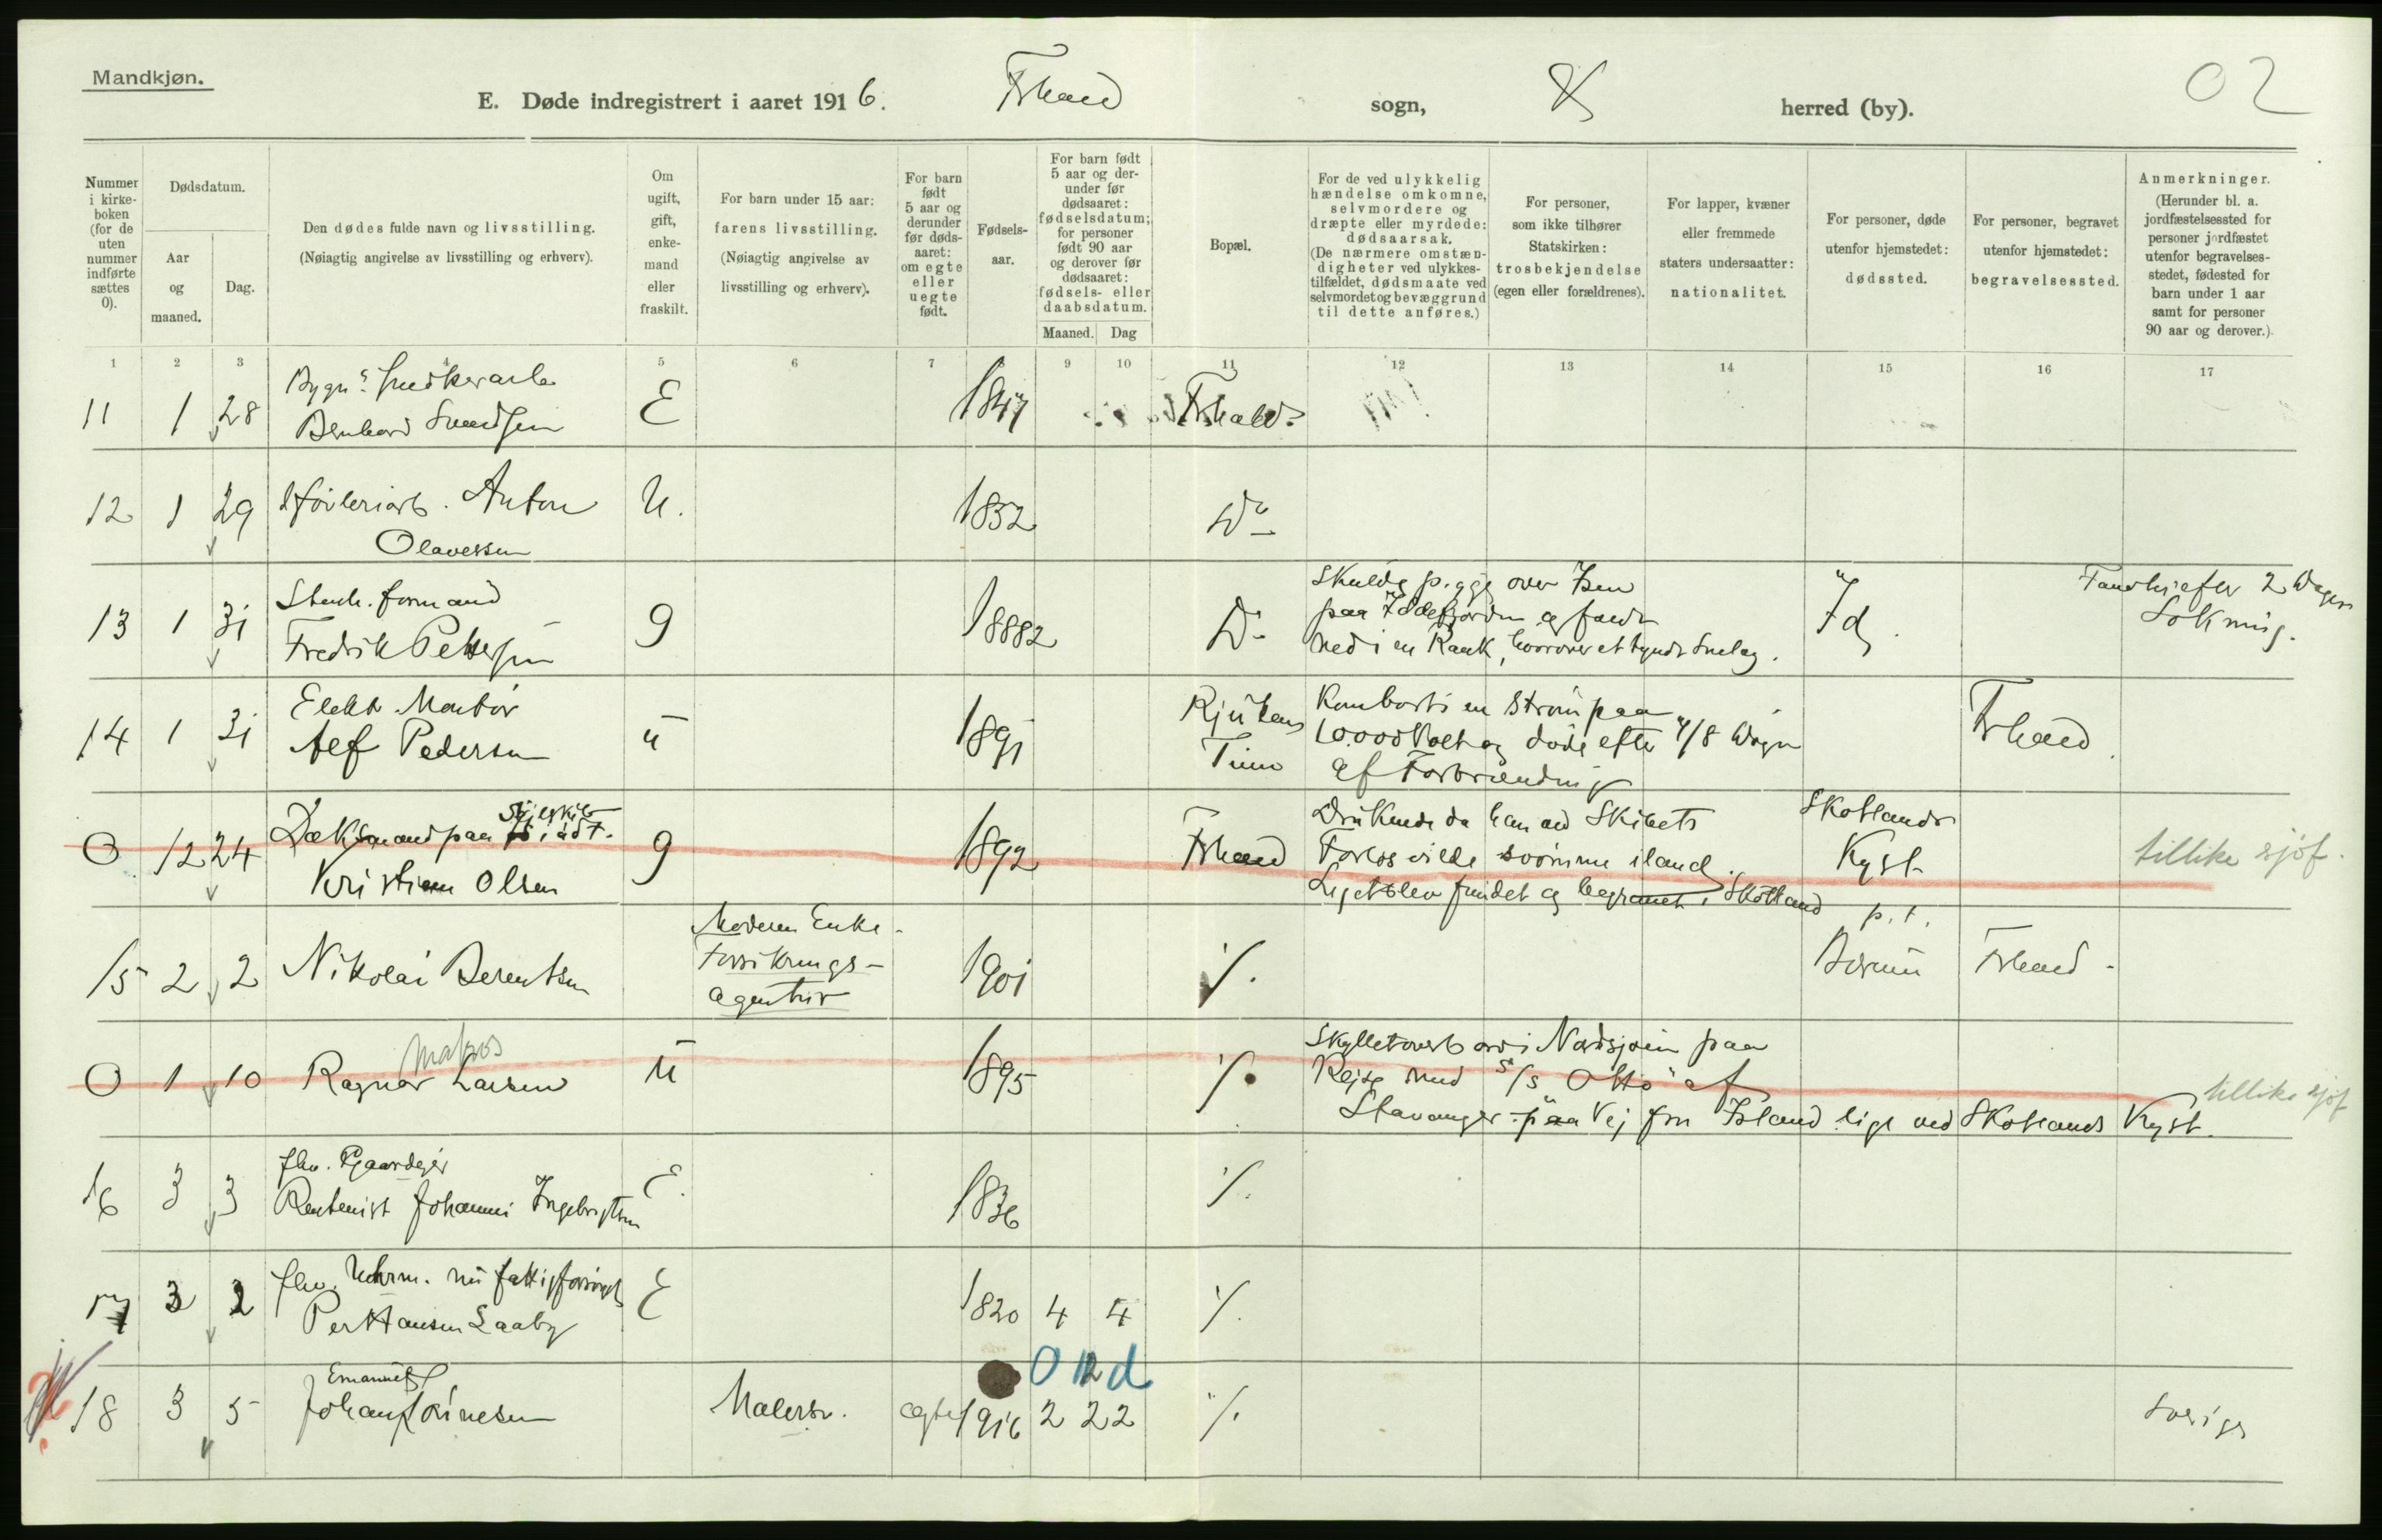 Mandkjøn.
E. Døde indregistrert i aaret 1916. Frhald sogn, herred (by).
02
Nummer i kirkeboken (for de uten nummer indførte sættes 0).
Dødsdatum.
Aar og maaned.
Dag.
Den dødes fulde navn og livsstilling.
(Nøiagtig angivelse av livsstilling og erhverv).
Om ugift, gift, enkemand eller fraskilt.
For barn under 15 aar: farens livsstilling.
(Nøiagtig angivelse av livsstilling og erhverv).
For barn født 5 aar og derunder før dødsaaret: om egte eller uegte født.
Fødselsaar.
For barn født 5 aar og derunder før dødsaaret: fødselsdatum; for personer født 90 aar og derover før dødsaaret: fødsels- eller daabsdatum.
Maaned. Dag
Bopæl.
For de ved ulykkelig hændelse omkomne, selvmordere og dræpte eller myrdede: dødsaarsak.
(De nærmere omstændigheter ved ulykkestilfældet, dødsmaate ved selvmordet og bevæggrund til dette anføres.)
For personer, som ikke tilhører Statskirken: trosbekjendelse (egen eller forældrenes).
For lapper, kvæner eller fremmede staters undersaatter: nationalitet.
For personer, døde utenfor hjemstedet: dødssted.
For personer, begravet utenfor hjemstedet: begravelsessted.
Anmerkninger.
(Herunder bl. a. jordfæstelsessted for personer jordfæstet utenfor begravelsesstedet, fødested for barn under 1 aar samt for personer 90 aar og derover.)
1 2 3 4 5 6 7 9 10 11 12 13 14 15 16 17
11 1 28 Bernhard Svendsen E 1847 Frhald
12 1 29 Anton U. 1852 Do
Olavessen
13 1 31 Stenh. formand
Fredrik Pettersen g 1882 Do
Skulde pigge over Isen
paa Iddefjorden og faldt
ned i en Raak, hvorover et tyndt Snelag.
Id.
Fandt efter 2 Dages
Sökning.
14 1 31 Elekt. Montör
Alf Pedersen u 1891 Rjukan
Tinn
Kom borti en Ström paa
10.000 Volt og döde efter 4/8 Dögn
af Forbrænding
Frhald
0 12 24 Dæksmand paa Seilskib
Kristian Olsen g 1892 Frhald
Druknede da han ved Skibets
Forlis vilde svömme iland.
Liget blev fundet og begravet i Skotland
Skotlands
Kyst
tillike sjöf.
15 2 2 Nikolai Berentsen
Moderen Enke
Forsikrings-
agentur
1901 ./.
p.t.
Frhald
0 1 10 matros
Ragnar Larsen u 1895 ./.
Skyllet overbord i Nordsjöen paa
Rejse med S/S "Otto" af
Stavanger paa Vej fra Island lige ved Skotlands Kyst.
tillike sjöf
16 3 3 fhv. Gaardejer
Rentenist Johannes Ingebrigtsen E. 1836 ./.
17 3 2 fhv. Uhrm. nu fattigforsörget
Per Hansen Laaby E 1820 4 4 ./.
0 12 d
18 3 5 Emanuel
Johan Malersv. egte 1916 2 22 ./. Sverige